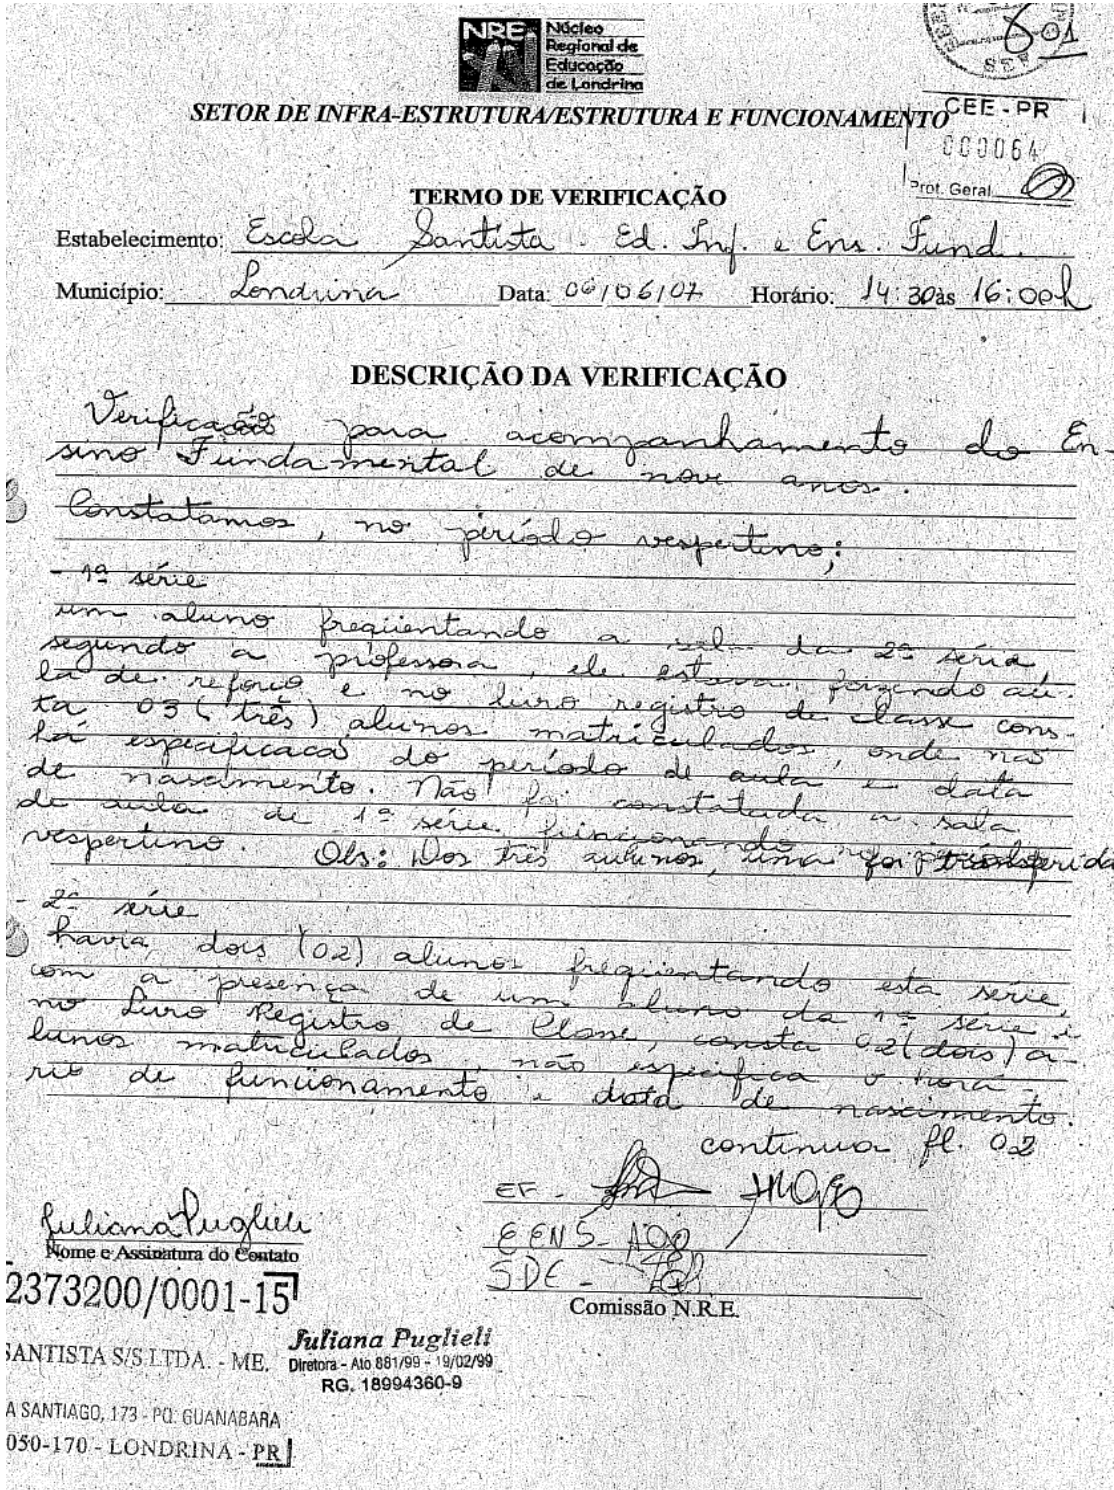 NRE Núcleo
Regional de
Educação
de Londrina
601
SEE
SETOR DE INFRA-ESTRUTURA/ESTRUTURA E FUNCIONAMENTO
CEE - PR
000064
Prot. Geral
TERMO DE VERIFICAÇÃO
Estabelecimento: Escola Santista - Ed. Inf. e Ens. Fund.
Município: Londrina Data: 06/06/07 Horário: 14:30 às 16:00h
DESCRIÇÃO DA VERIFICAÇÃO
Verificação para acompanhamento do En-
sino Fundamental de nove anos.
Constatamos, no período vespertino:
- 1ª série
um aluno freqüentando a sala da 2ª série,
segundo a professora, ele estava fazendo au-
la de reforço e no livro registro de classe cons-
ta 03 (três) alunos matriculados, onde não
há especificacaõ do período de aula e data
de nascimento. Não foi constatada a sala
de aula de 1ª série funcionando no período
vespertino. Obs: Dos três alunos, uma foi transferida
- 2ª série
havia dois (02) alunos freqüentando esta série,
com a presença de um aluno da 1ª série e
no Livro Registro de Classe, consta 02 (dois) a-
lunos matriculados, não especifica o horá-
rio de funcionamento e data de nascimento.
continua fl. 02
EF -
Juliana Puglieli
Nome e Assinatura do Contato
EENS -
SDE -
Comissão N.R.E.
2373200/0001-15
Juliana Puglieli
SANTISTA S/S LTDA. - ME.
Diretora - Ato 881/99 - 19/02/99
RG. 18994360-9
A SANTIAGO, 173 - PQ. GUANABARA
050-170 - LONDRINA - PR